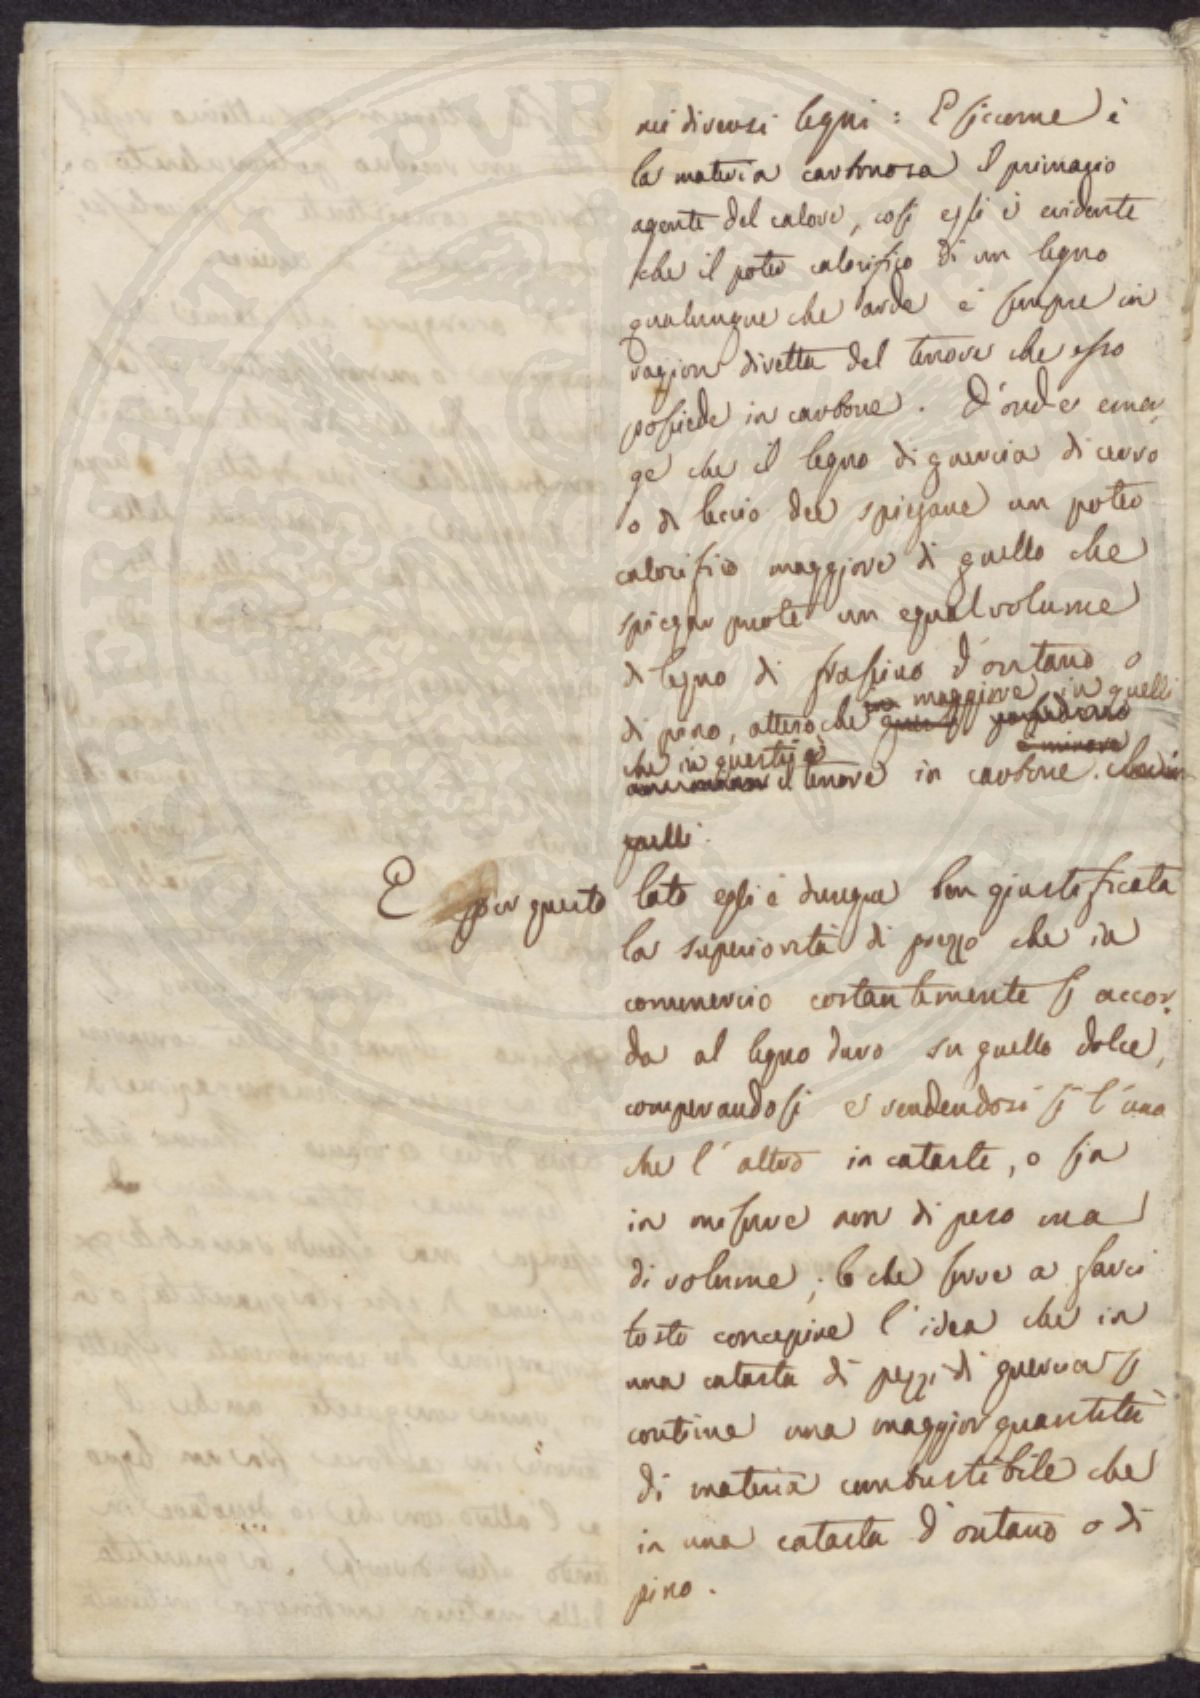 nei diversi legni: E siccome è
la materia carbonosa il primario
agente del calore, così essi è evidente
che il poter calorifico di un legno
qualunque che arde è sempre in
ragion diretta del tenore che esso
possiede in carbone. D'onde emer-
ge che il legno di quercia di cerro
o di leccio dee spiegare un poter
calorifico maggiore di quello che
spiegar puote un egual volume
di legno di frassino d'ontano o
in maggiore in quelli
di pino, attesoche posseduno
è minore
che in questi è
il tenore in carbone. che in
quelli.
E per questo lato essi è dunque ben giustificata
la superiorità di prezzo che in
commercio costantemente si accor-
da al legno duro su quello dolce,
comperandosi e vendendosi sì l'uno
che l'altro in cataste, o sia
in misure non di peso ma
di volume; lo che serve a farci
tosto concepire l'idea che in
una catasta di pezzi di quercia si
contiene una maggior quantità
di materia combustibile che
in una catasta d'ontano o di
pino.